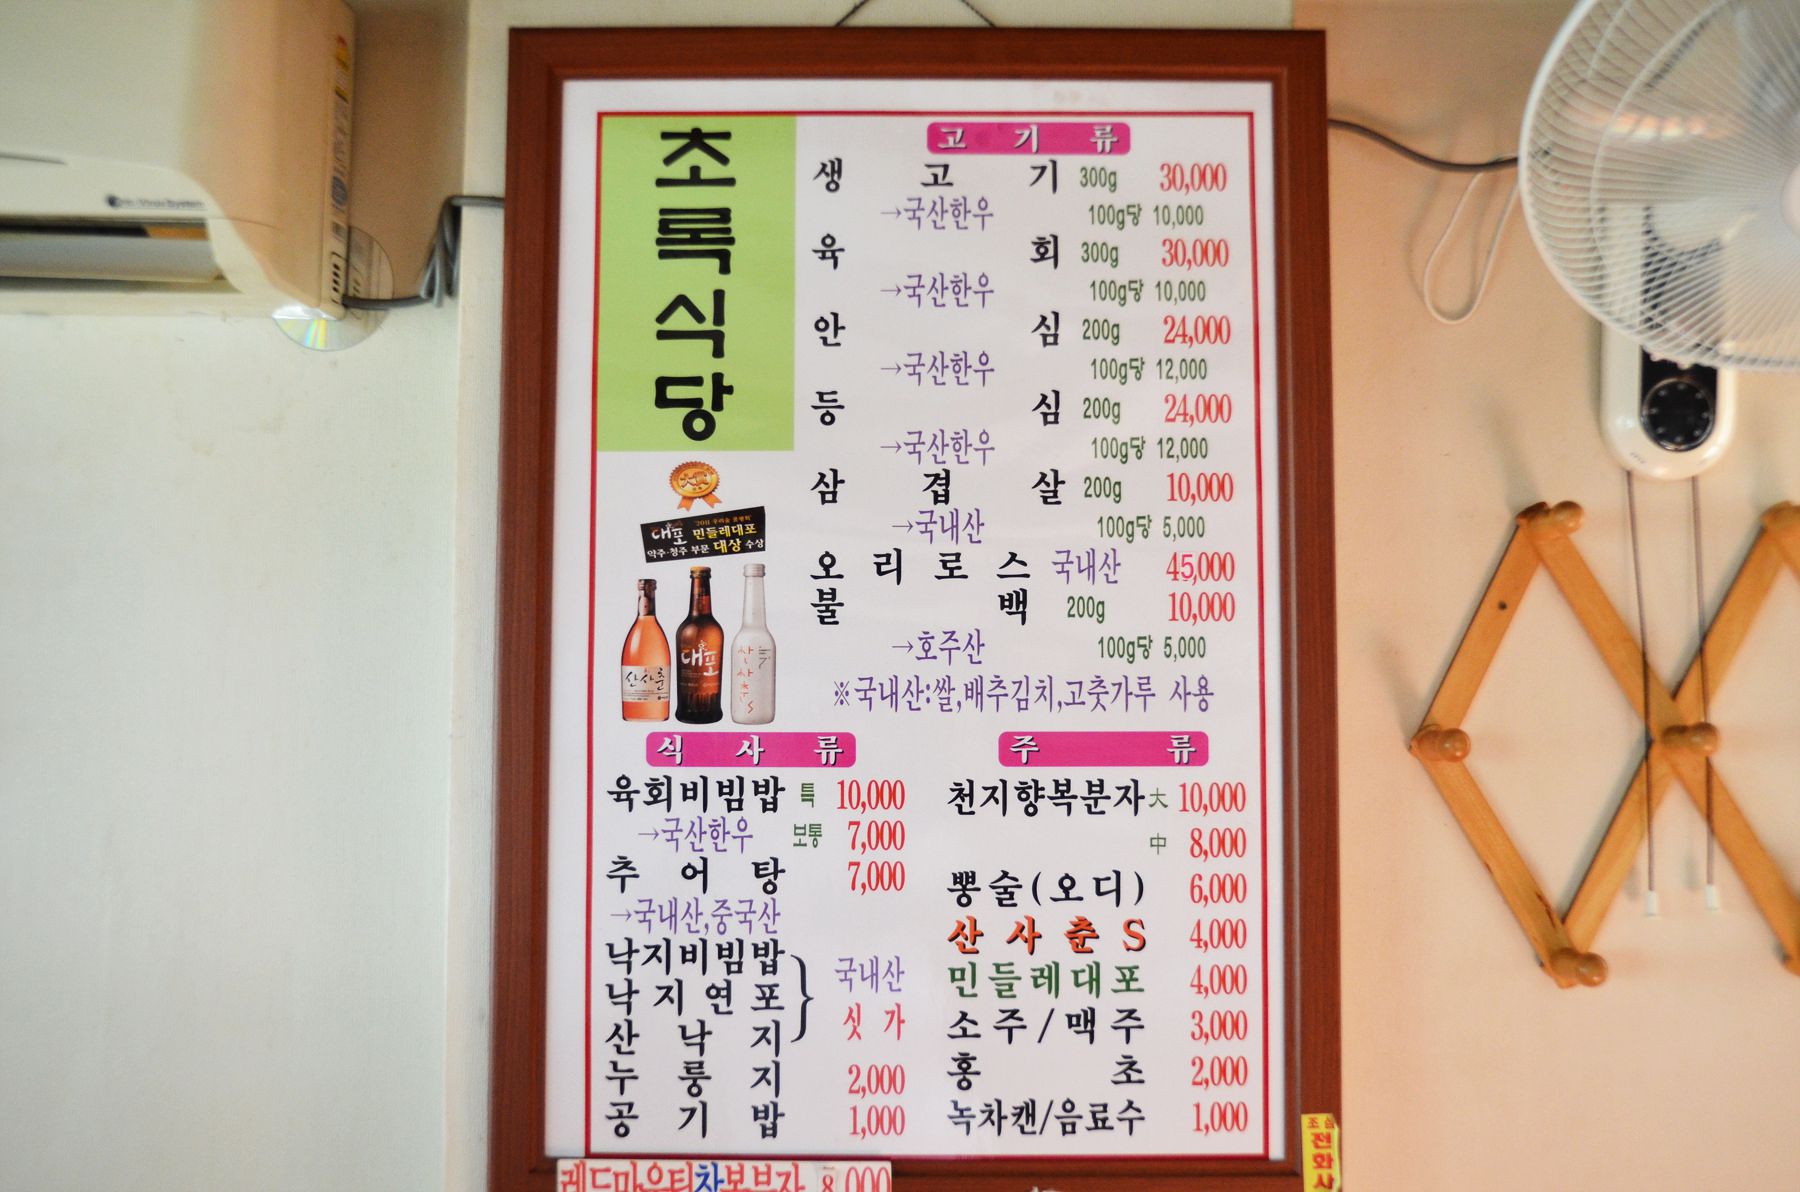 초록식당
고기류
생고기 300g 30,000
→국산한우 100g당 10,000
육회 300g 30,000
→국산한우 100g당 10,000
안심 200g 24,000
→국산한우 100g당 12,000
등심 200g 24,000
→국산한우 100g당 12,000
삼겹살 200g 10,000
→국내산 100g당 5,000
오리로스 국내산 45,000
불백 200g 10,000
→호주산 100g당 5,000
※국내산:쌀,배추김치,고춧가루 사용
대포 민들레대포
약주·청주 부문 대상 수상
산사춘
대포
산사춘S
식사류
육회비빔밥 특 10,000
→국산한우 보통 7,000
추어탕 7,000
→국내산,중국산
낙지비빔밥
낙지연포 국내산
산낙지 싯가
누룽지 2,000
공기밥 1,000
주류
천지향복분자 大 10,000
中 8,000
뽕술(오디) 6,000
산사춘S 4,000
민들레대포 4,000
소주/맥주 3,000
홍초 2,000
녹차캔/음료수 1,000
조심
전화사